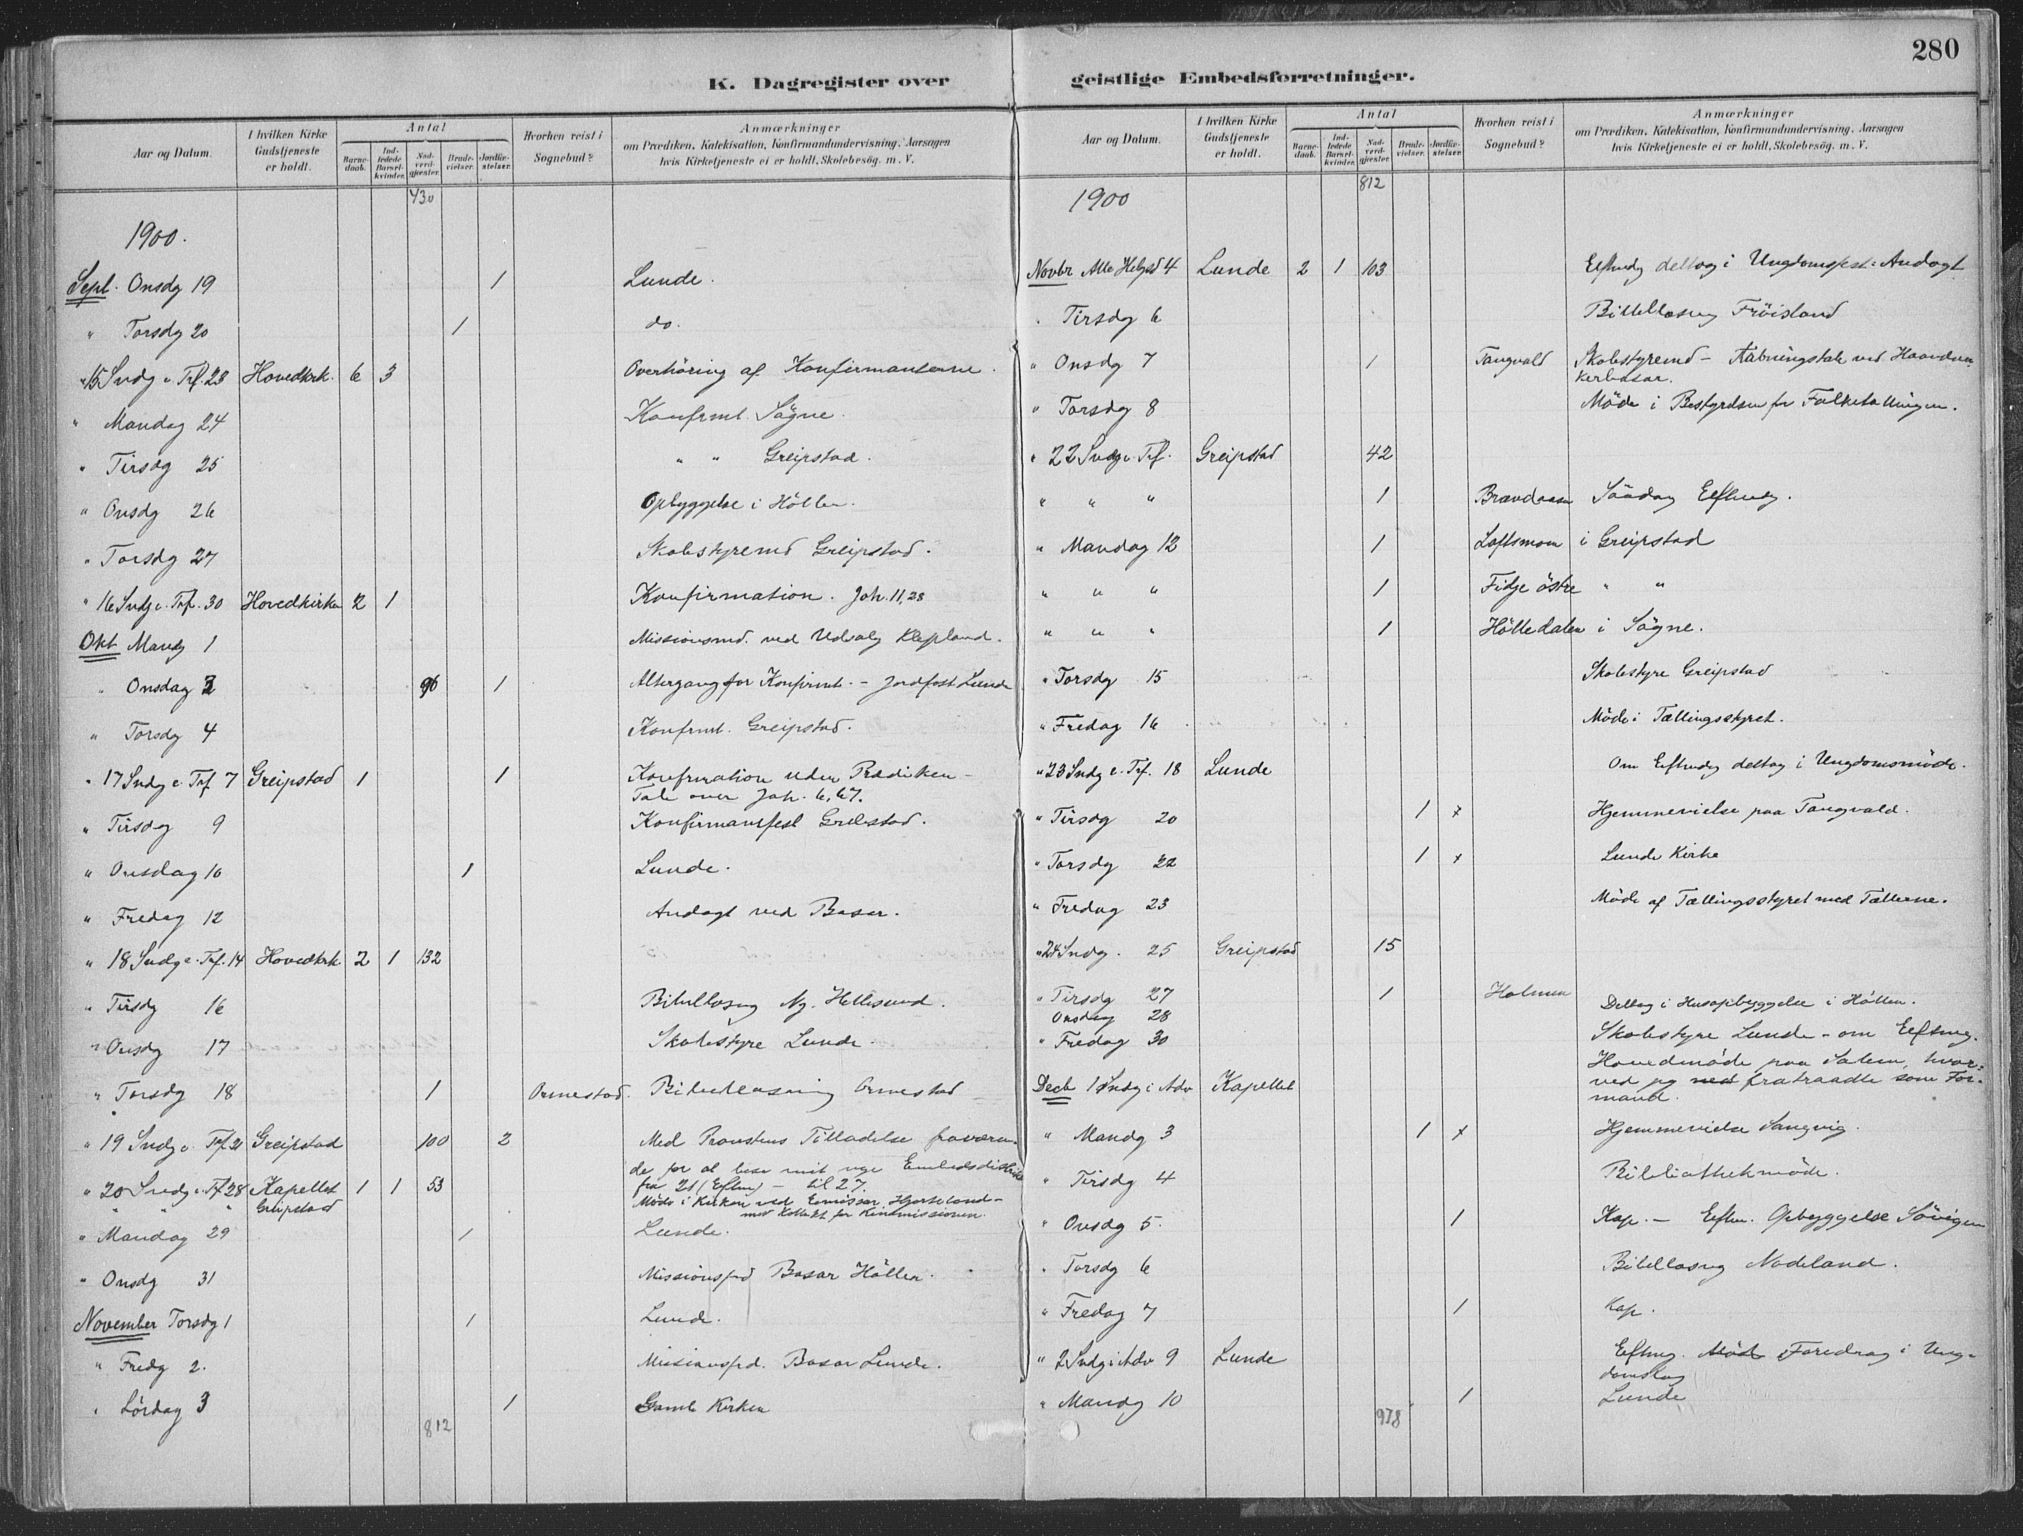 280
K. Dagregister over geistlige Embedsforretninger.
Aar og Datum.
I hvilken Kirke Gudstjeneste er holdt.
Antal
Barnedaab.
Indledede Barselkvinder.
Nadverdgjester.
Brudevielser.
Jordfæstelser.
Hvorhen reist i Sognebud?
Anmærkninger
om Prædiken, Katekisation, Konfirmandundervisning, Aarsagen
hvis Kirketjeneste ei er holdt, Skolebesøg. m. V.
430
1900.
Sept. Onsdg 19 1 Lunde.
" Torsdg 20 1 do.
" 15 Sndg e. Trf. 23 Hovedkrk. 6 3 Overhöring af Konfirmanterne.
" Mandag 24 Konfrmt. Sögne.
" Tirsdg 25 " " Greipstad.
" Onsdg 26 Opbyggelse i Höllen.
" Torsdg 27 Skolestyremd Greipstad.
" 16 Sndg e. Trf. 30 Hovedkirken 12 1 Konfirmation. Joh. 11,28
Okt Mandg 1 Missionsmd. ved Udsalg Klepland.
" Onsdag 3 96 1 Altergang for Konfirmt. - Jordfæst Lunde
" Torsdg 4 Konfrmt. Greipstad.
" 17 Sndg e. Trf 7 Greipstad 1 1 Konfirmation uden Prædiken -
Tale over Joh. 6,67.
" Tirsdg 9 Konfirmantfest Greipstad.
" Onsdag 10 1 Lunde.
" Fredag 12 Andagt ved Basar.
" 18 Sndg e. Trf. 14 Hovedkrk. 2 1 132
" Tirsdg 16 Bibellæsng Ny. Hellesund.
" Onsdg 17 Skolestyre Lunde.
" Torsdg 18 1 Ormestad. Bibellæsning Ormestad
" 19 Sndg e. Trf 21 Greipstad 100 2 Med Provstens Tilladelse fraværen-
de for at bese mit nye Embedsdistrikt
" 20 Sndg e. Trf 28 Kapellet 1 1 53 fra 21 (Eftm) - til 27.
" " " Greipstad Möde i Kirken ved Emissær Hjorteland -
med Kollekt for Kinamissionen.
" Mandag 29 1 Lunde.
" Onsdg 31 Missionsfrd Basar Höllen.
November Torsdg 1 1 Lunde.
" Fredg 2. Missionsfrd. Basar Lunde.
" Lördag 3 1 Gamle Kirken
812
Aar og Datum.
I hvilken Kirke Gudstjeneste er holdt.
Antal
Barnedaab.
Indledede Barselkvinder.
Nadverdgjester.
Brudevielser.
Jordfæstelser.
Hvorhen reist i Sognebud?
Anmærkninger
om Prædiken, Katekisation, Konfirmandundervisning, Aarsagen
hvis Kirketjeneste ei er holdt, Skolebesøg. m. V.
812
1900
Novbr Alle Helgsd 4 Lunde 2 1 103 Eftmdg deltog i Ungdomsfest: Andagt
" Tirsdg 6 Bibellæsng Fröisland
" Onsdg 7 1 Tangvald Skolestyremd - Aabningstale ved Haandvær-
kerbasar.
" Torsdg 8 Möde i Bestyrelsen for Folketællingen.
" 22 Sndg e. Trf. Greipstad 42
" " " 1 Brandaasen Söndag Eftmdg.
" Mandag 12 1 Loftsmoen i Greipstad
" " " 1 Fidje östre " "
" " " 1 Hölledalen i Sögne.
" Torsdg 15 Skolestyre Greipstad
" Fredag 16 Möde i Tællingsstyret.
" 23 Sndg e. Trf. 18 Lunde Om Eftmdg deltog i Ungdomsmöde.
" Tirsdg 20 1 x Hjemmevielse paa Tangvald.
" Torsdg 22 1 x Lunde Kirke
" Fredag 23 Möde af Tællingsstyret med Tællerne.
" 24 Sndg. 25 Greipstad 15
" Tirsdg 27 1 Holmen Deltog i Husopbyggelse i Höllen.
Onsdag 28 Skolestyre Lunde - om Eftmg.
" Fredag 30 Hovedmöde paa Salem, hvor-
ved jeg fratraadte som For-
mand.
Decb 1 Sndg i Adv Kapellet
" Mandg 3 1 x Hjemmevielse Langvig.
" Tirsdg 4 Bibliothekmöde.
" Onsdg 5. 1 Kap. - Eftm. Opbyggelse Sövigen
" Torsdg 6 Bibellæsng Nodeland.
" Fredag 7 1 Kap.
" 2 Sndg i Adv 9 Lunde Eftmg. Möde Foredrag i Ung-
domslag
" Mandg 10 1 Lunde
978